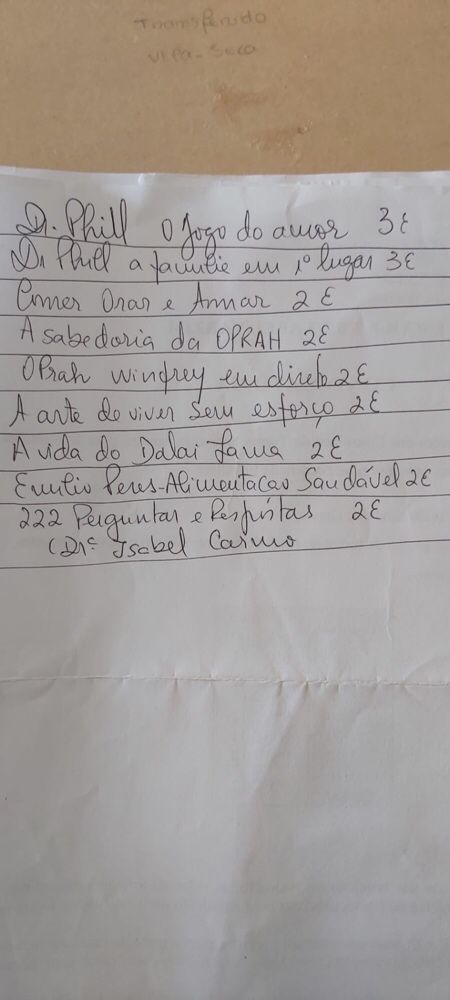 Transferido
vila-seca
D. Phill O Jogo do amor 3€
Dr Phill a familie em 1º lugar 3€
Comer Orar e Amar 2€
A sabedoria da OPRAH 2€
OPrah winfrey em direto 2€
A arte de viver sem esforço 2€
A vida do Dalai Lama 2€
Emilio Peres-Alimentacao Saudável 2€
222 Perguntas e Respostas 2€
(Drª Isabel Carmo